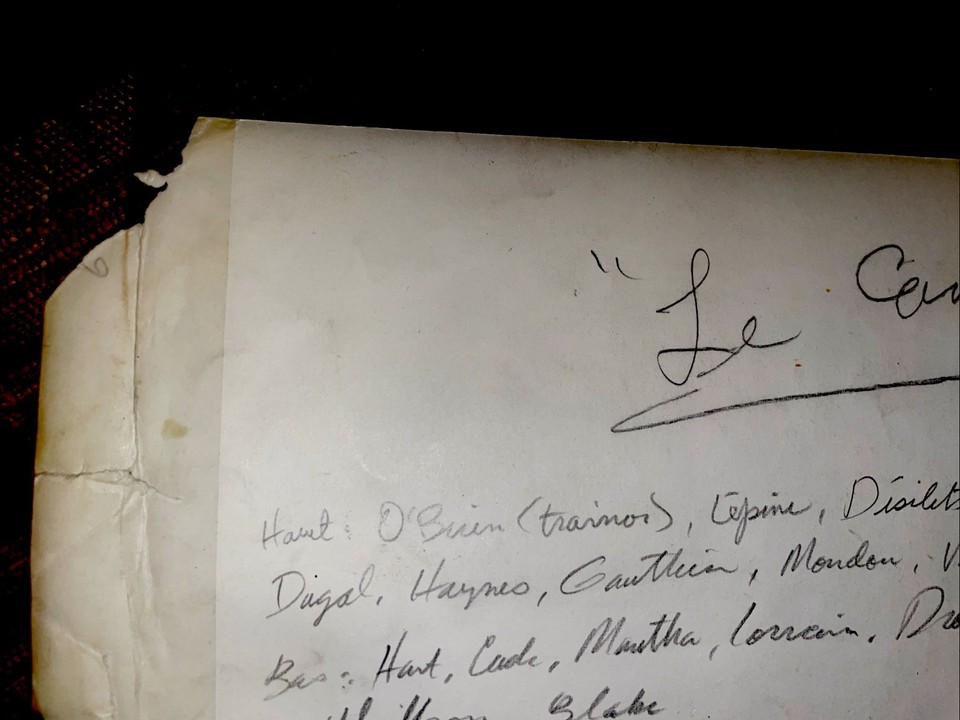 " Le Can
Haut : O'Brien (trainor), Lépine, Désilets
Dugal, Haynes, Gauthier, Mondou, V
Bas : Hart, Cude, Mantha, Lorrain, Dro
Blake